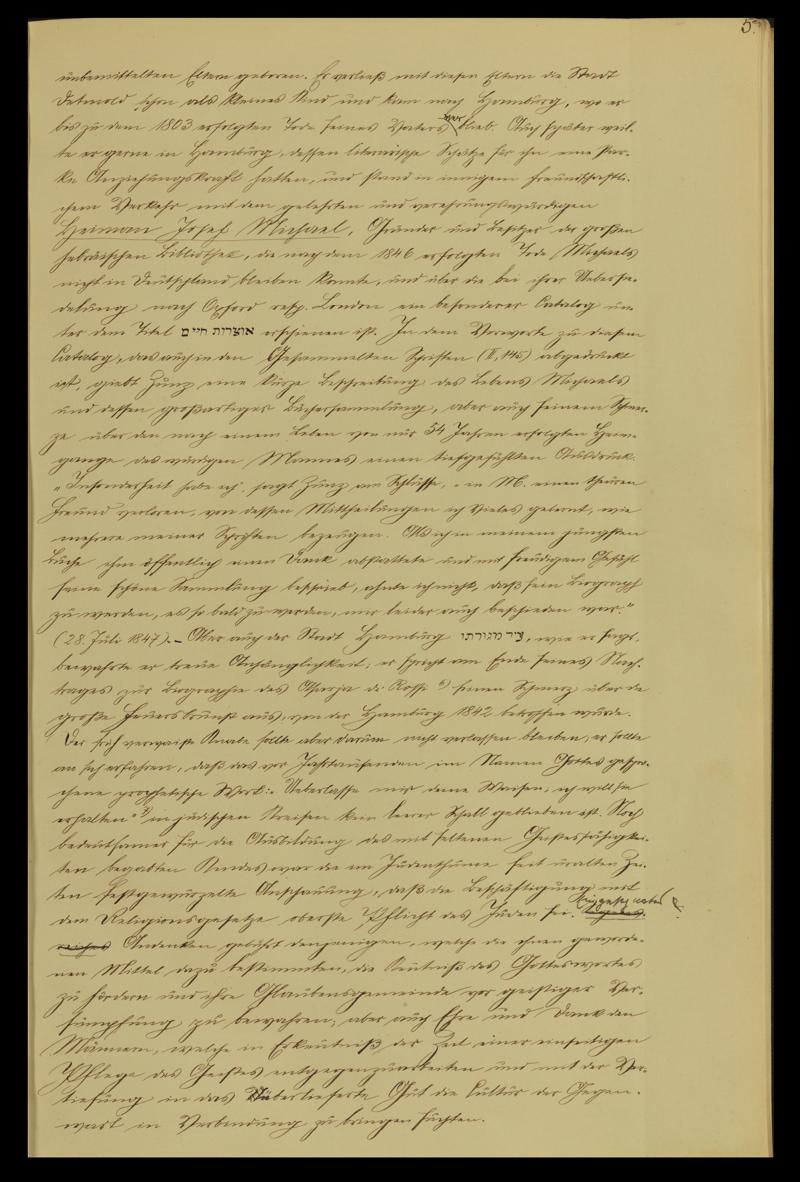 5.
unbemittelten Eltern geboren. Er verließ mit diesen Eltern die Stadt
Detmold schon als kleines Kind und kam nach Hamburg, wo er
bis zu dem 1803 erfolgten Tode seines Vaters verblieb. Auch später weil-
te er gerne in Hamburg, dessen literarische Schätze für ihn eine star-
ke Anziehungskraft hatten, und stand in innigem freundschaftli-
chem Verkehr mit dem gelehrten und verehrungswürdigen
Heiman Josef Michael, Gründer und Besitzer der großen
hebräischen Bibliothek, die nach dem 1846 erfolgten Tode Michaels
nicht in Deutschland bleiben konnte, und über die bei ihrer Uebersie-
delung nach Oxford resp. London ein besonderer Catalog un-
ter dem Titel אוצרות חיים erschienen ist. In dem Vorworte zu diesem
Catalog, das auch in den Gesammelten Schriften (II, 145) abgedruckt
ist, giebt Zunz eine kurze Beschreibung des Lebens Michaels
und dessen großartiger Büchersammlung, aber auch seinem Schmer-
ze über den nach einem Leben von nur 54 Jahren erfolgten Heim-
gange des würdigen Mannes einen tiefgefühlten Ausdruck.
„Insonderheit habe ich", sagt Zunz am Schlusse, „in M. einen theuren
Freund verloren, von dessen Mittheilungen ich Vieles gelernt, wie
mehrere meiner Schriften bezeugen. Als ich in meinem jüngsten
Buche ihm öffentlich einen Dank abstattete und mit freudigem Gefühl
seine schöne Sammlung beschrieb, ahnte ich nicht, daß sein Biograph
zu werden, es so bald zu werden, mir leider auch beschieden war."
(28. Juli 1847). – Aber auch der Stadt Hamburg עיר מגורתו, wie er sagt,
bewahrte er treue Anhänglichkeit; er spricht am Ende seines Nach-
trages zur Biographie des Asarja de Rossi 6) seinen Schmerz über die
große Feuersbrunst aus, von der Hamburg 1842 betroffen wurde.
Der früh verwaiste Knabe sollte aber darum nicht verlassen bleiben, er sollte
an sich erfahren, daß das vor Jahrtausenden im Namen Gottes gespro-
chene prophetische Wort: „Ueberlasse mir deine Waisen, ich will sie
erhalten" 7) in jüdischen Kreisen kein leerer Schall geblieben ist. Noch
bedeutsamer für die Ausbildung des mit seltenen Geistesfähigkei-
ten begabten Kindes war die im Judenthume seit uralten Zei-
ten festgewurzelte Anschauung, daß die Beschäftigung mit
dem Religionsgesetze oberste Pflicht des Juden sei.
Andenken gebührt denjenigen, welche die ihnen geworde-
nen Mittel dazu bestimmten, die Kentniß des Gotteswortes
zu fördern und ihre Glaubensgemeinde vor geistiger Ver-
sumpfung zu bewahren; aber auch Ehre und Dank den
Männern, welche in Erkentniß der Zeit einer einseitigen
Pflege des Geistes entgegenzuarbeiten und mit der Ver-
tiefung in das überlieferte Gut die Cultur der Gegen-
wart in Verbindung zu bringen suchten.